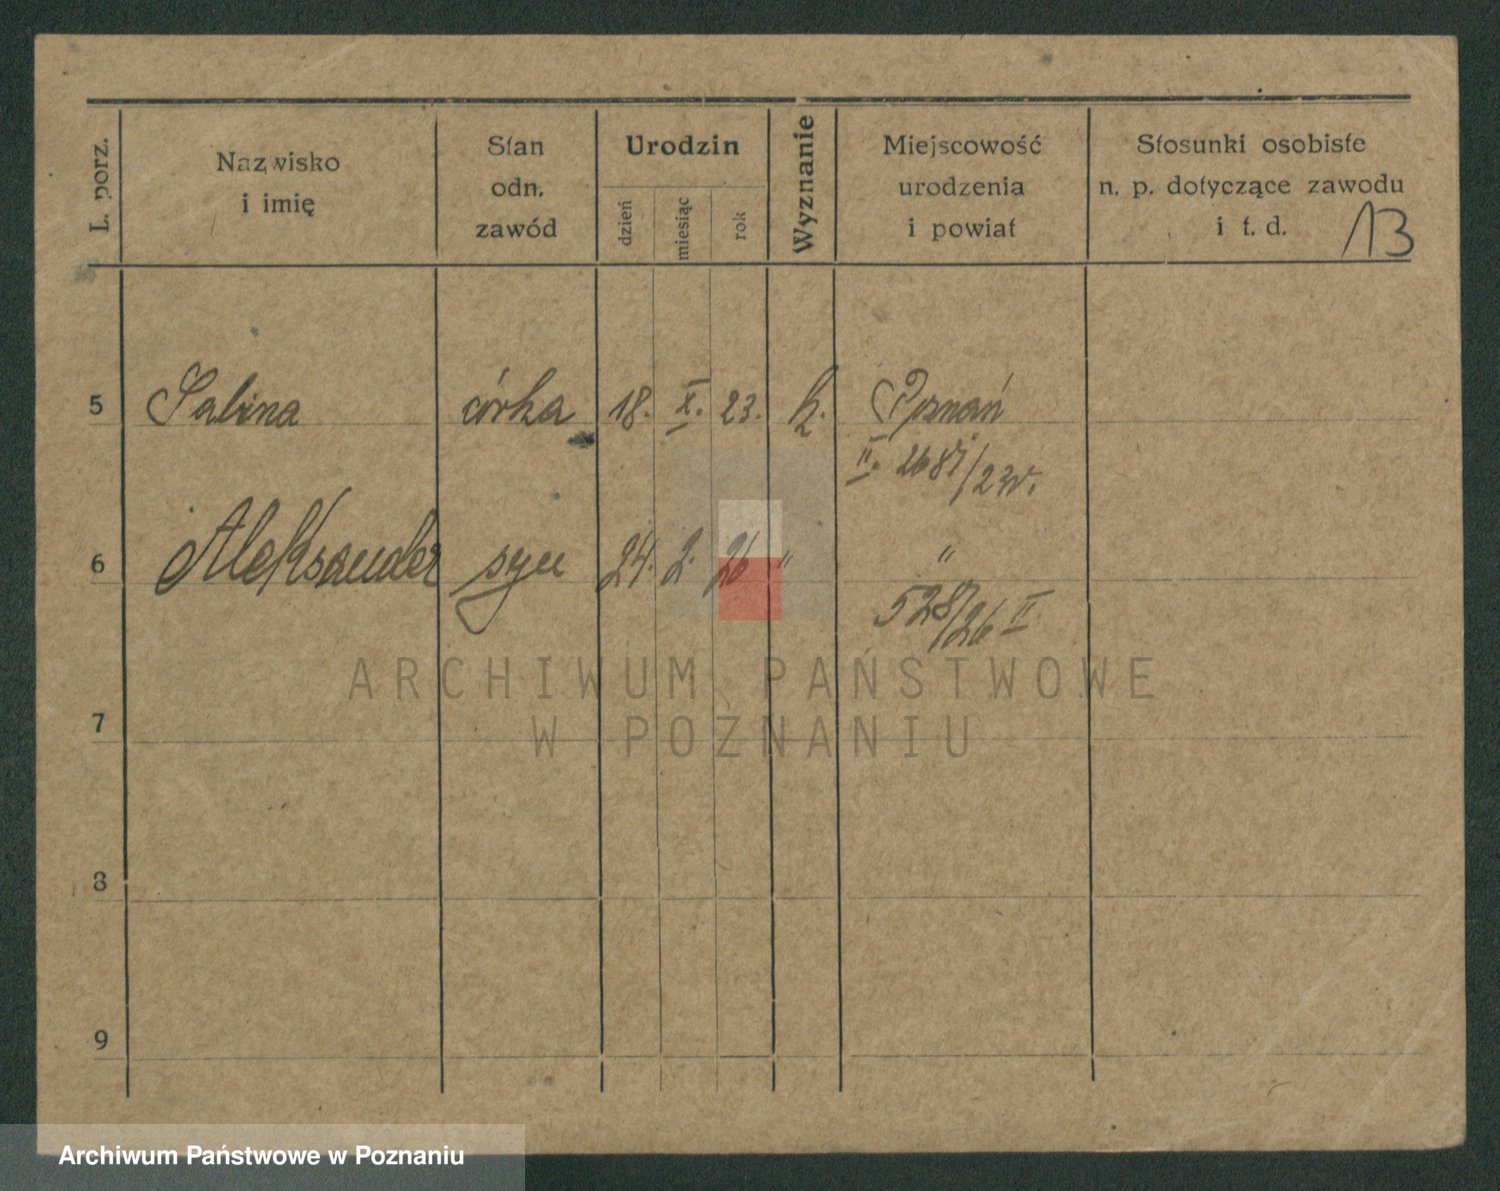 L. porz.
Nazwisko
i imię
Stan
odn.
zawód
Urodzin
dzień
miesiąc
rok
Wyznanie
Miejscowość
urodzenia
i powiat
Stosunki osobiste
n. p. dotyczące zawodu
i t. d.
13
5 Sabina córka 18. X. 23. k. Poznań
II. 2687/23r.
6 Aleksander syn 24. 2. 26 " "
528/26 II
ARCHIWUM PAŃSTWOWE
W POZNANIU
7
8
9
Archiwum Państwowe w Poznaniu